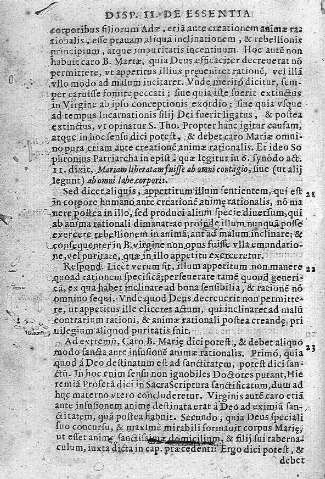 DISP. II. DE ESSENTIA
corporibus filiorum Adæ, etiã ante creationem animæ ra
tionalis, esse prauam aliquã inclinationem, & rebellionis
principium, atque impuritatis incentinum. Hoc autẽ non
habuit caro B. Mariæ, quia Deus efficaciter decreuerat nõ
permittere, vt appetitus illius præueniret rationẽ, vel illã
vllo modo ad malum incitaret. Vnde meritò dicitur, sem
per caruisse fomite peccati; siue quia iste fuerit extinctus
in Virgine ab ipso conceptionis exordio; siue quia vsque
ad tempus Incarnationis filij Dei fuerit ligatus, & postea
extinctus, vt opinatur S. Tho. Propter hanc igitur causam,
atque in hoc sensu dici potest, & debet caro Mariæ omni-
no pura etiam ante creationẽ animæ rationalis. Et ideo So
phronius Patriarcha in epist. quæ legitur in 6. synodo act.
11. dixit. Mariam liberatam fuisse ab omni contagio, siue (vt alij
legunt) ab omni labe corporis.
Sed dicet aliquis, appetitum illum sentientem, qui est 21
in corpore humano ante creationẽ animæ rationalis, nõ ma
nere postea in illo, sed produci alium specie diuersum, qui
ab anima rationali dimanat: proinde illum nunquã posse
exercere rebellionem in animã, aut ad malum inclinare, &
consequenter in B. virgine non opus fuisse vlla emundatio-
ne, vel puritate, quæ in illo appetitu exerceretur.
Respond. Licet verum sit, illum appetitum non manere 22
quoad rationem specificã; perseuerare tamẽ quoad generi-
cã, ex qua habet inclinare ad bona sensibilia, & rationẽ nõ
omnino sequi. Vnde quod Deus decreuerit non permitte-
re, vt appetitus ille eliceret actum, quia inclinaret ad malũ
contrarium rationi, & animæ rationali postea creandę, pri
uilegium aliquod puritatis fuit.
Ad extremũ, Caro B. Mariæ dici potest, & debet aliquo 23
modo sancta ante infusionẽ animæ rationalis. Primò, quia
quod à Deo destinatum est ad sanctitatem, potest dici san-
ctũ. In hoc enim sensu non ignobiles Doctores putant, Hie
remiã Prophetã dici in Sacra Scriptura sanctificatum, dum ad
huc materno vtero concluderetur. Virginis autẽ caro etiã
ante infusionem animę destinata erat à Deo ad eximiã san-
ctitatem, quã postea habuit. Secundò, quia Deus speciali
suo concursu, & maximè mirabili formauit corpus Mariæ,
vt esset animę sanctissimę domicilium, & filij sui taberna-
culum, iuxta dicta in cap. præcedenti: Ergo dici potest, &
debet